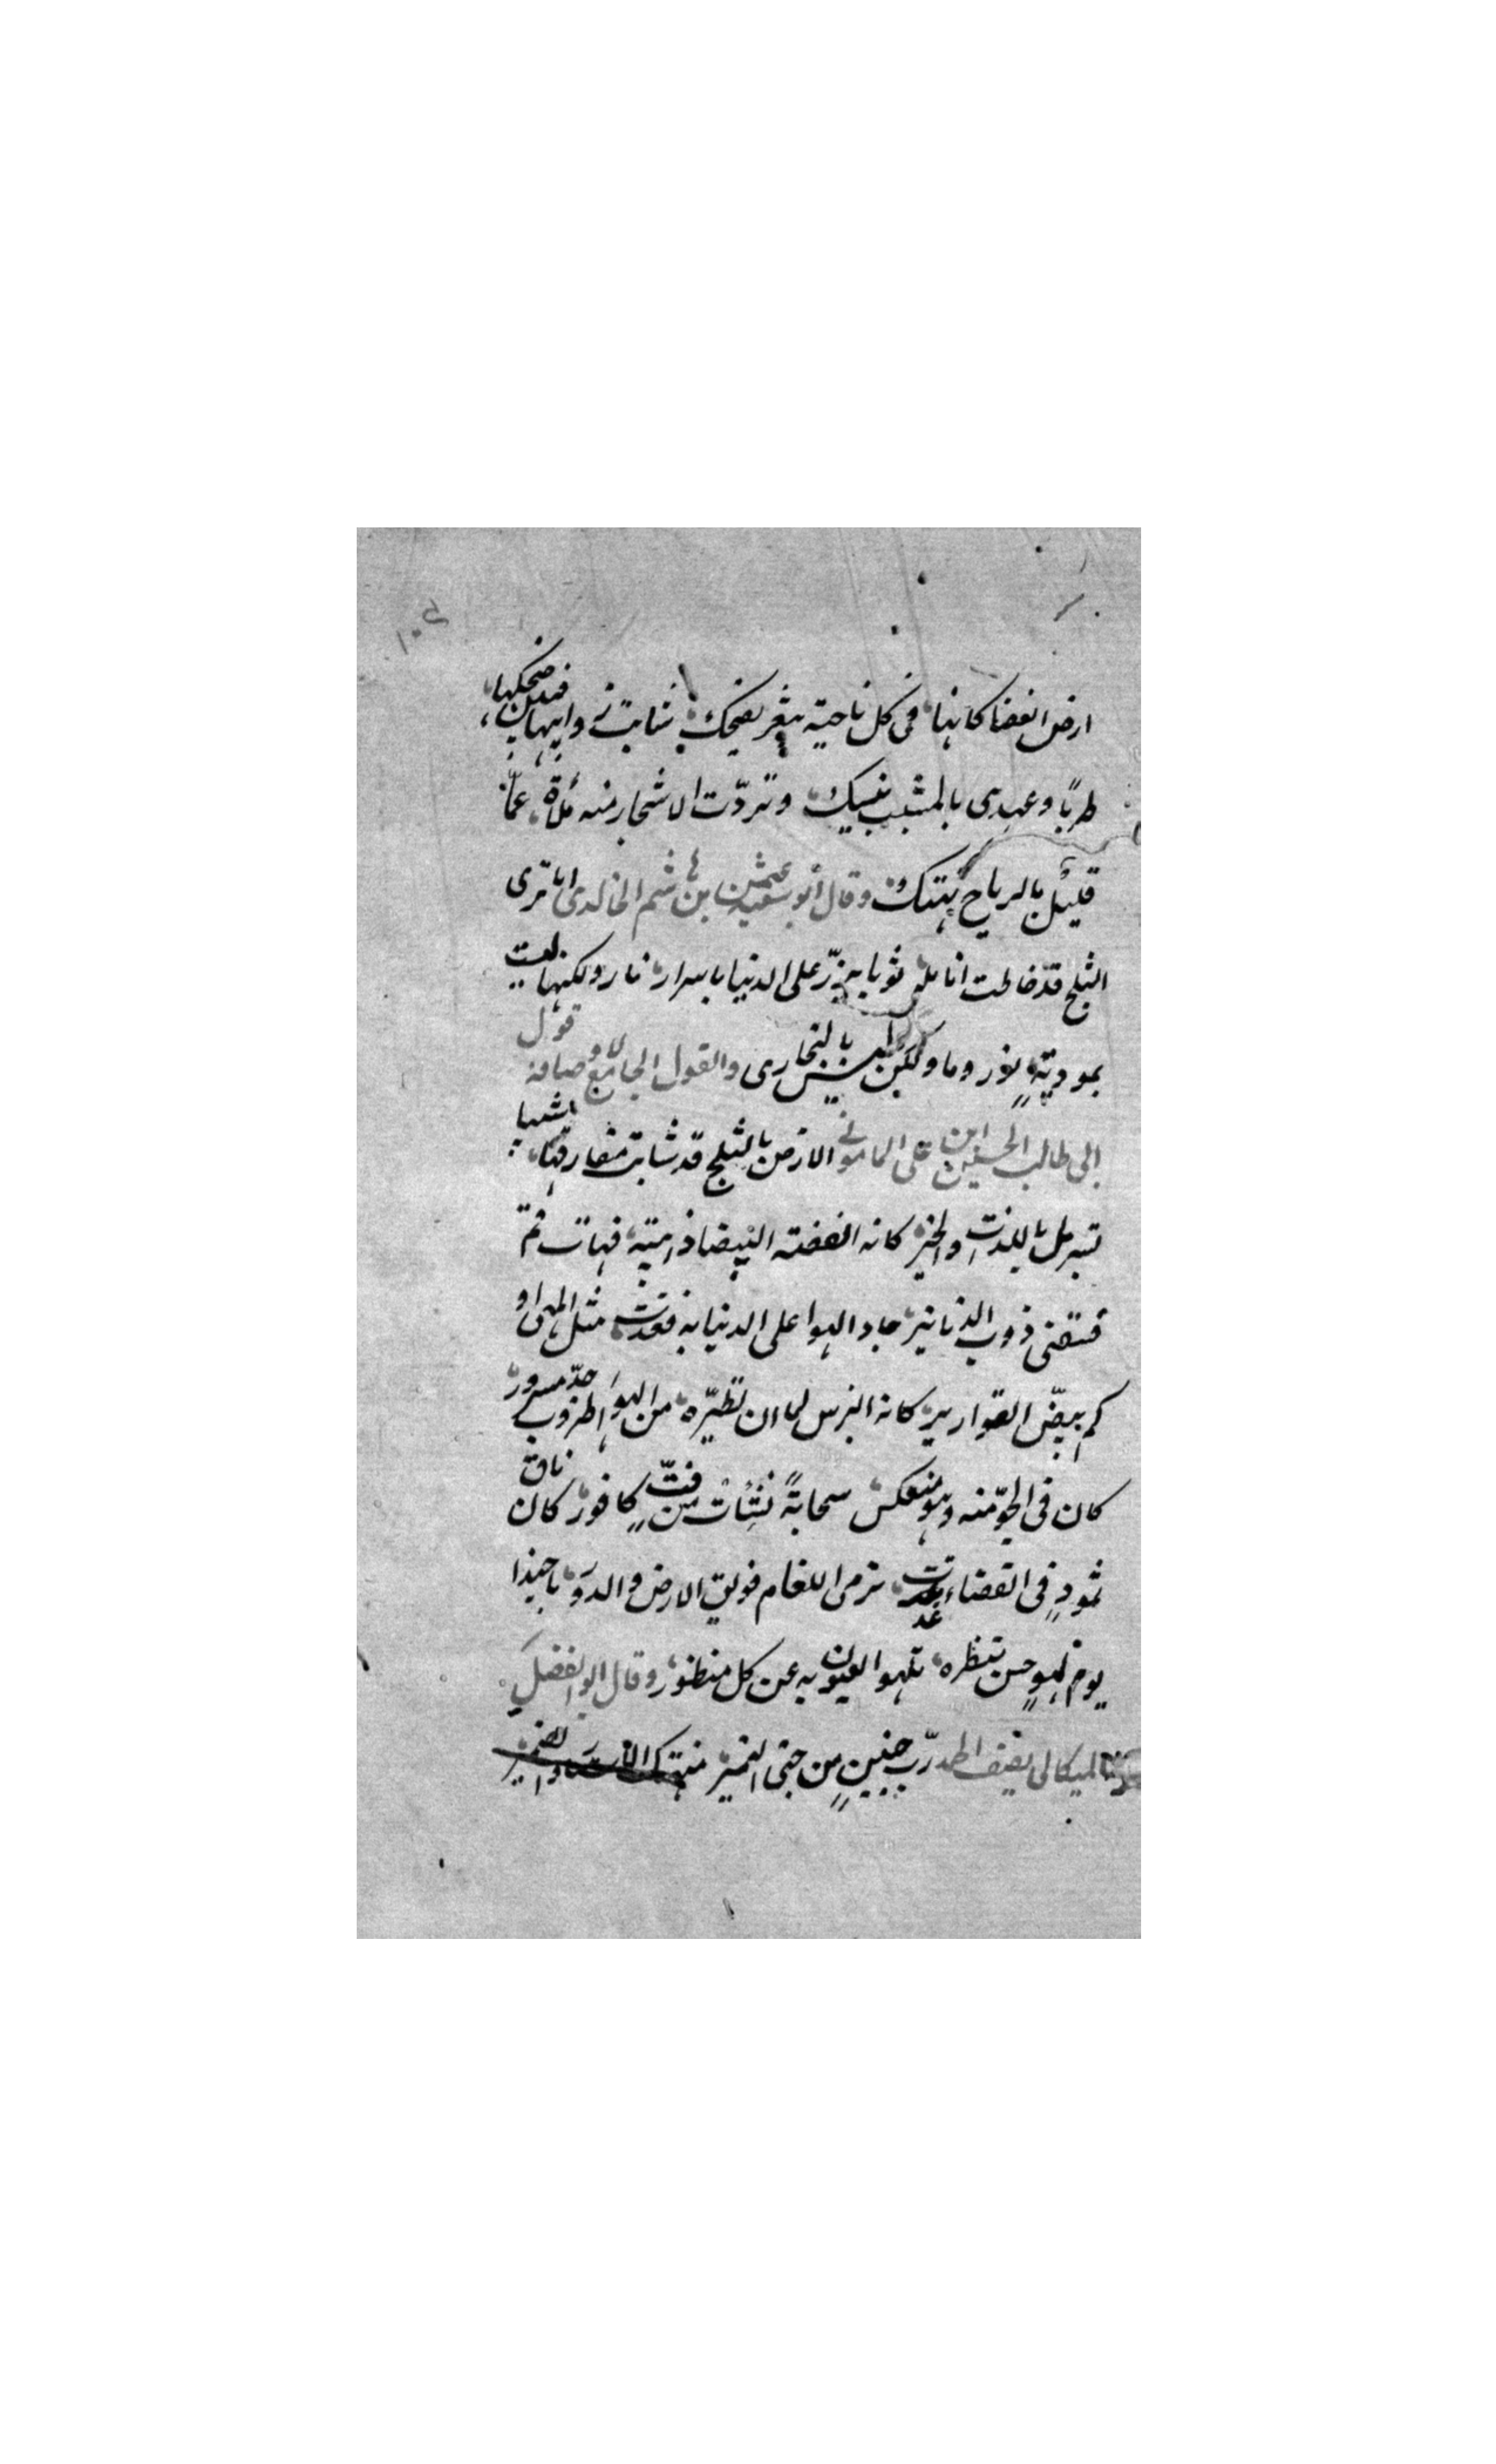 ارض الفضا كانها، فى كل ناحية بثغر يضحك، شابت ذوايبها فبين ضحكها،
طربًا وعهدى بالمشيب ينسك، وتردّت الاشجار منه ملاةً، عمّا
قليل بالرياح تهتك، وقال ابو سعيد عثمن ابن هاشم الخالدى اما ترى
الثلج قد خاطت انامله ثوبا يزرّ على الدنيا بازرار، نار ولكنها ليت
بمودية نور وماء ولكن ليس بالنجارى والقول الجامع لاوصافه قول
ابى طالب الحسين ابن على المامونى الارض بالثلج قد شابت مفارقها،
تسربل باللذات والخير كانه الفضة البيضا ذامية، فهات ثمّ
فسقنى ذوب الدنانير، جاد الهوا على الدنيا به فغدت، مثل المها او
كم بيضّ القوارير، كانه البرس لما ان تطيّره، من الهوا ضروب حدّ مسرور،
كان فى الجوّ منه وهو منعكس، سحابةً نشأت من فتّ كافور، كان ناق
ثمودٍ فى الفضاء غدت، ترمى اللغام فويق الارض والدور، يا حبذا
يوم لهوٍ حسن منظره، تلهو العيون به عن كل منظور، وقال ابو الفضل
الميكالى يصف الجمد ربّ جنينٍ من جنى النمير، منهتك الاستار والضمير